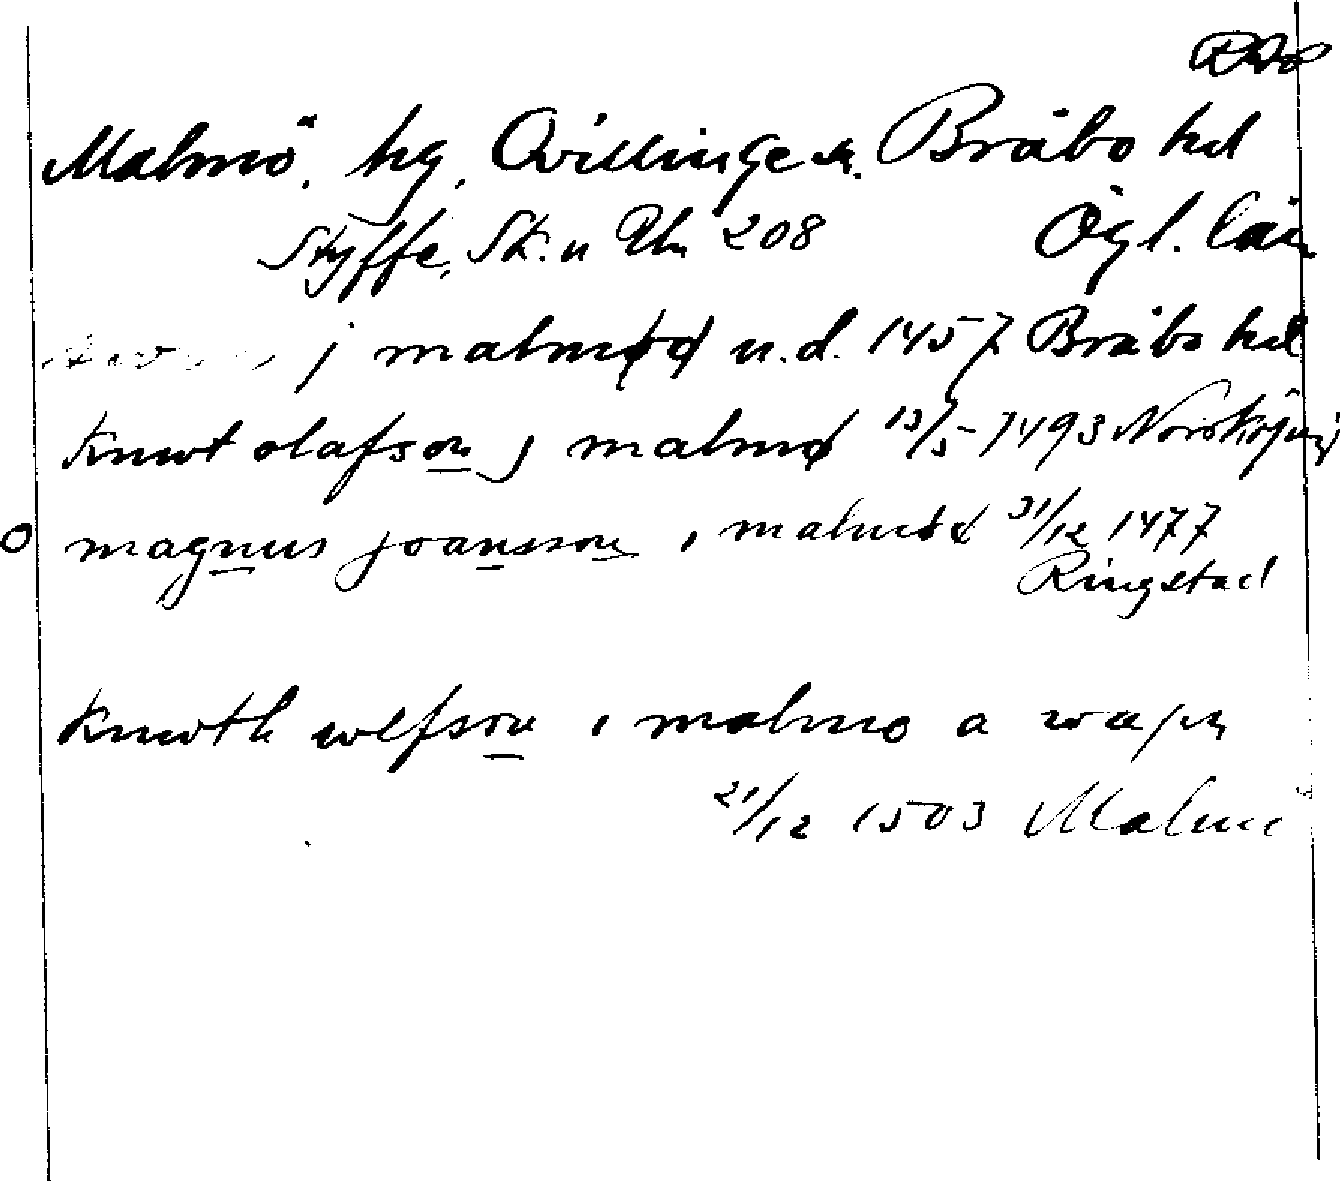 Malmö, hg, Qvillinge sn. Bråbo hd
Styffe, Sk. u Un 208 Ögl. län
j malmøø u.d. 1457 Bråbo hd
knwt olafson j malmø 13/5 1493 Norrköping
magnus joansson i malmöö 31/12 1477
Ringstad
knwth wlfson i malmo a wapn
21/12 1503 Malmö